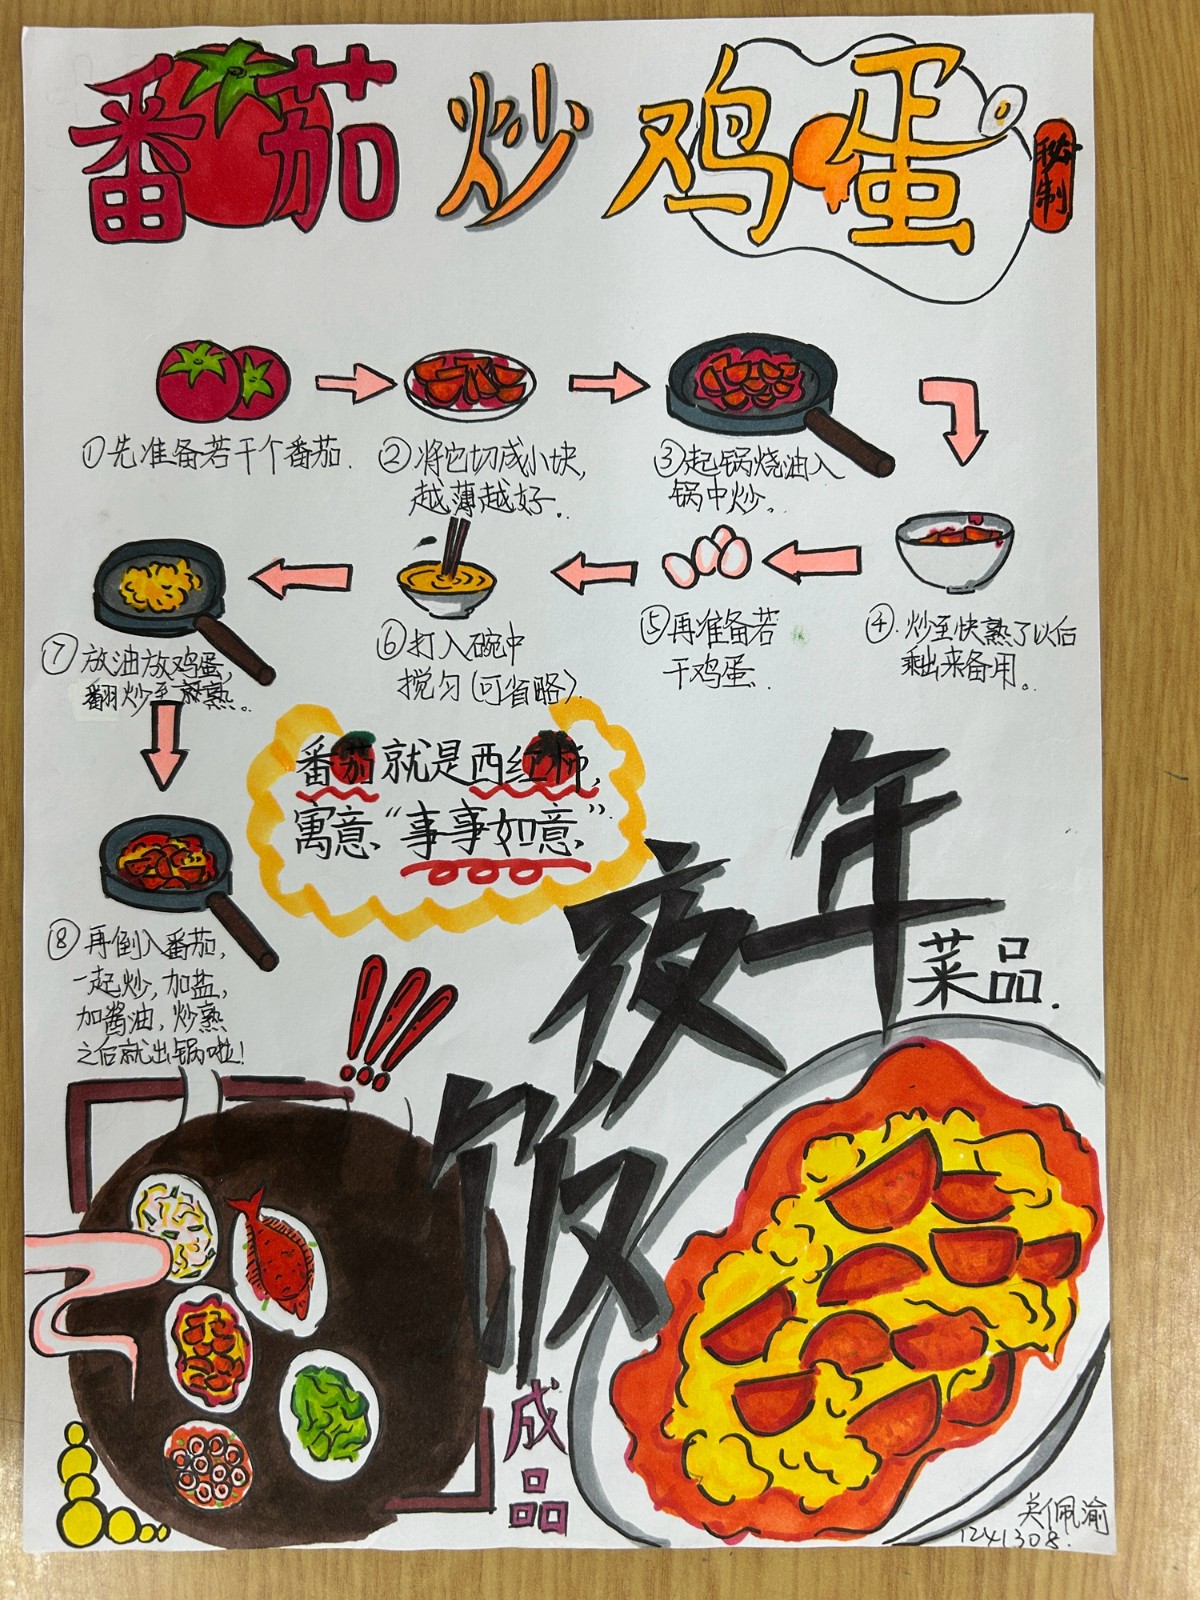 番茄炒鸡蛋
秘制
①先准备若干个番茄.
②将它切成小块,
越薄越好.
③起锅烧油入
锅中炒。
④.炒至快熟了以后
乘出来备用。
⑤再准备若
干鸡蛋.
⑥打入碗中
搅匀(可省略)
⑦放油放鸡蛋,
翻炒至煎熟。
番茄就是西红柿,
寓意“事事如意”
⑧再倒入番茄,
一起炒,加盐,
加酱油,炒熟
之后就出锅啦!
年夜饭
菜品.
成品
吴佩渝
1241308.